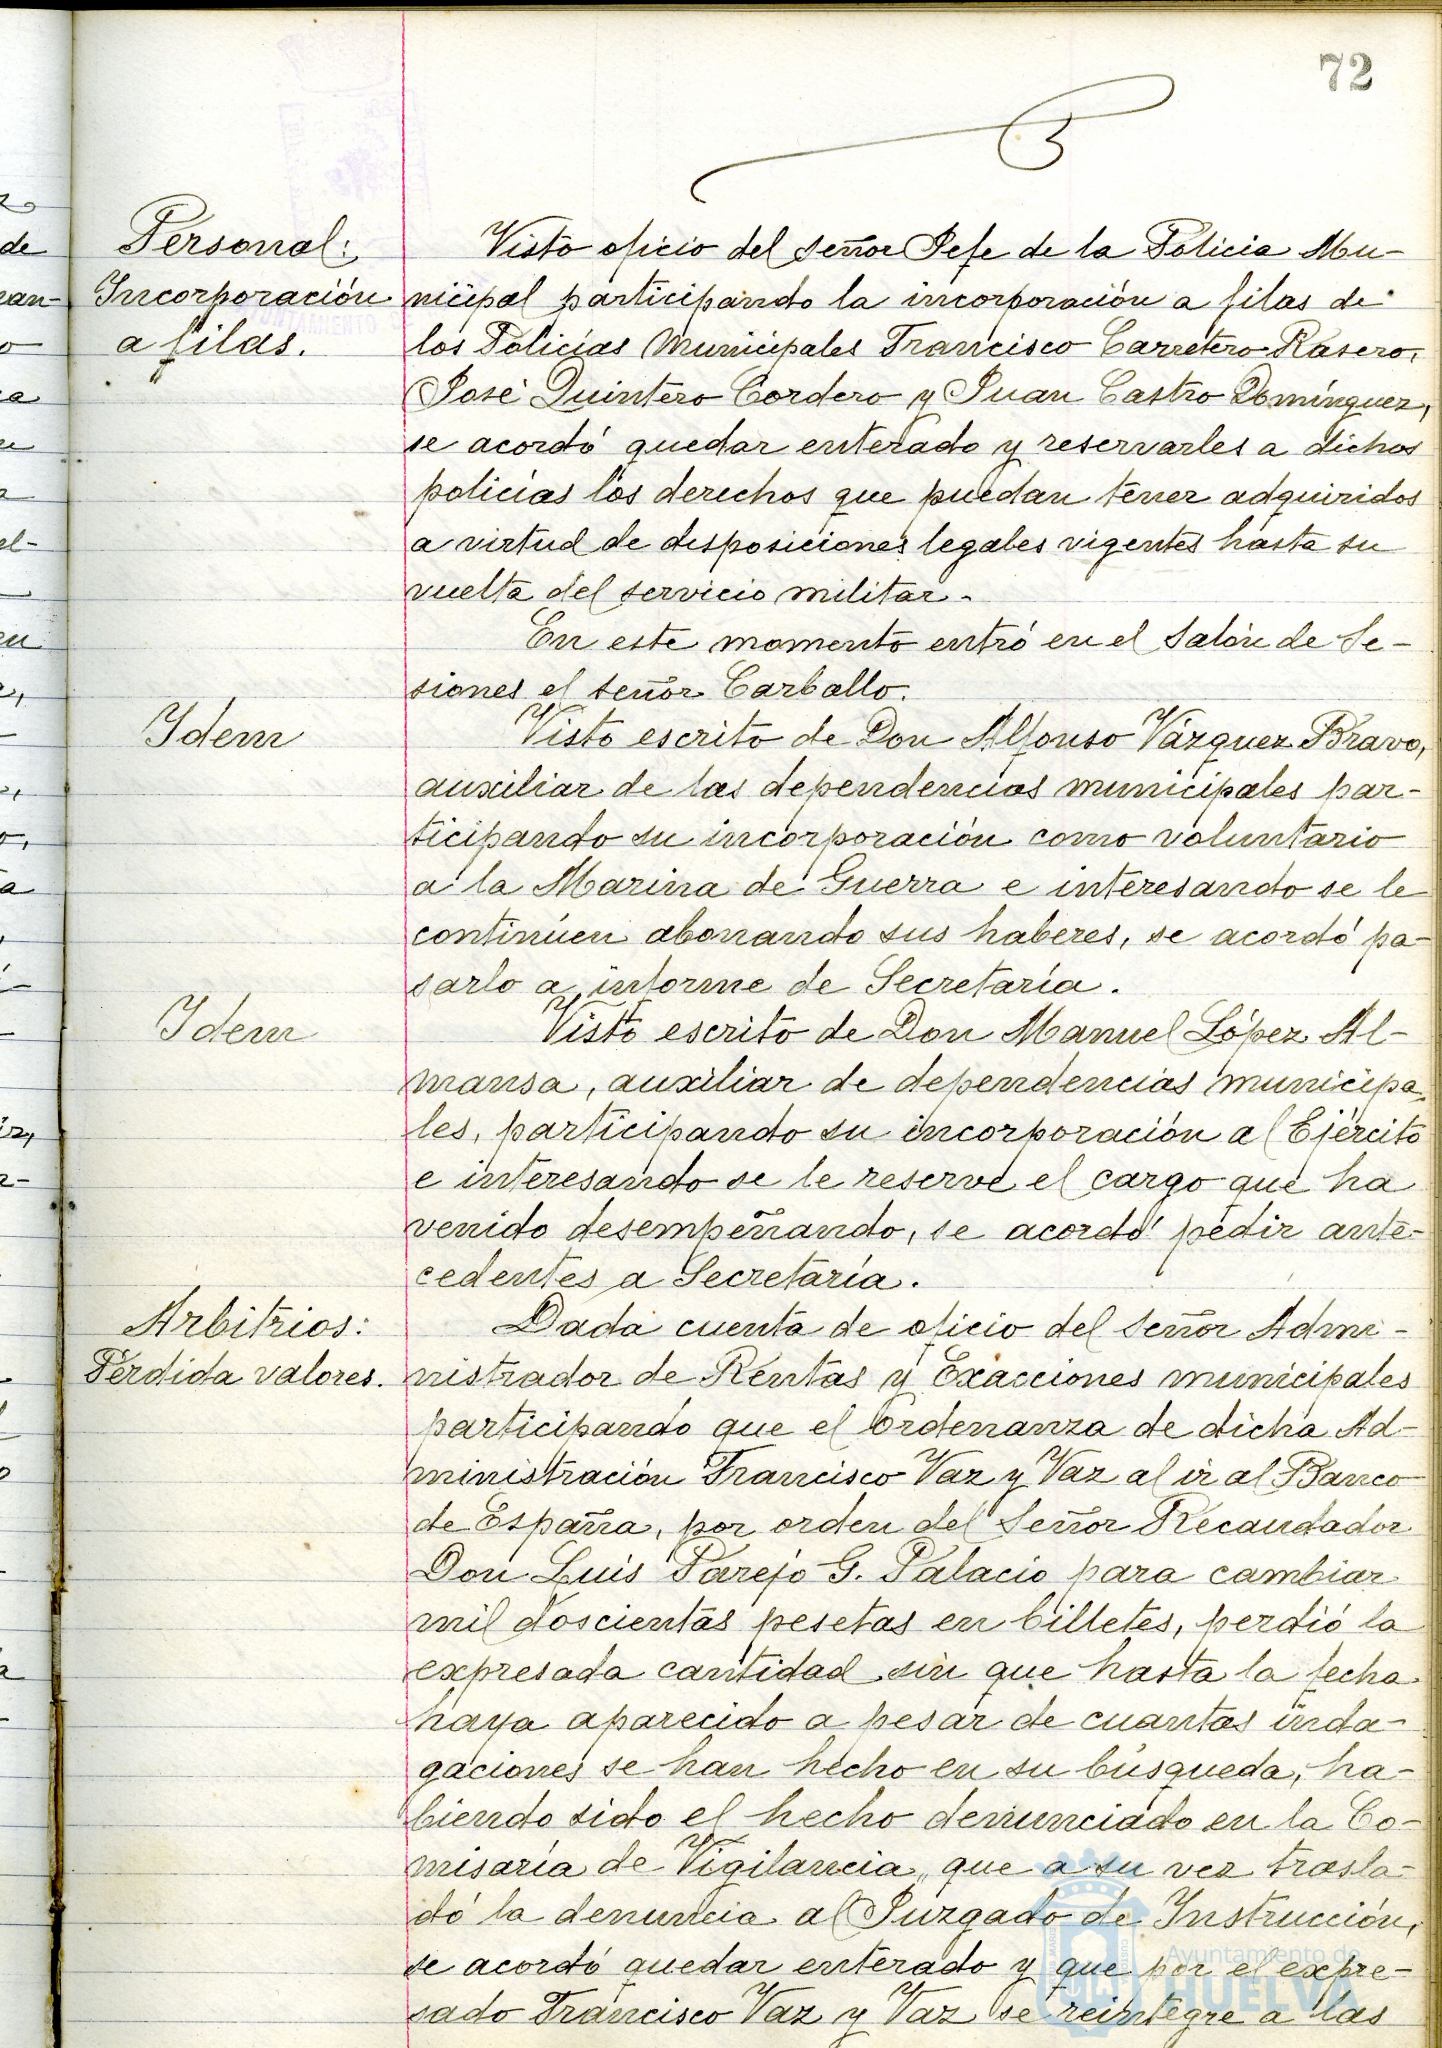 72
Personal:
Incorporación
a filas.
Visto oficio del señor Jefe de la Policia Mu-
nicipal participando la incorporación a filas de
los Policías Municipales Francisco Carretero Rasero,
José Quintero Cordero y Juan Castro Domínguez,
se acordó quedar enterado y reservarles a dichos
policías los derechos que puedan tener adquiridos
a virtud de disposiciones legales vigentes hasta su
vuelta del servicio militar.
En este momento entró en el Salón de Se-
siones el señor Carballo.
Idem
Visto escrito de Don Alfonso Vázquez Bravo,
auxiliar de las dependencias municipales par-
ticipando su incorporación como voluntario
a la Marina de Guerra e interesando se le
continúen abonando sus haberes, se acordó pa-
sarlo a informe de Secretaría.
Idem
Visto escrito de Don Manuel López Al-
mansa, auxiliar de dependencias municipa-
les, participando su incorporación al Ejército
e interesando se le reserve el cargo que ha
venido desempeñando, se acordó pedir ante-
cedentes a Secretaría.
Arbitrios:
Pérdida valores.
Dada cuenta de oficio del señor Admi-
nistrador de Rentas y Exacciones municipales
participando que el Ordenanza de dicha Ad-
ministración Francisco Vaz y Vaz al ir al Banco
de España, por orden del Señor Recaudador
Don Luis Parejo G. Palacio para cambiar
mil doscientas pesetas en billetes, perdió la
expresada cantidad sin que hasta la fecha
haya aparecido a pesar de cuantas inda-
gaciones se han hecho en su búsqueda, ha-
biendo sido el hecho denunciado en la Co-
misaría de Vigilancia, que a su vez trasla-
dó la denuncia al Juzgado de Instrucción,
se acordó quedar enterado y que por el expre-
sado Francisco Vaz y Vaz se reintegre a las
Ayuntamiento de
HUELVA